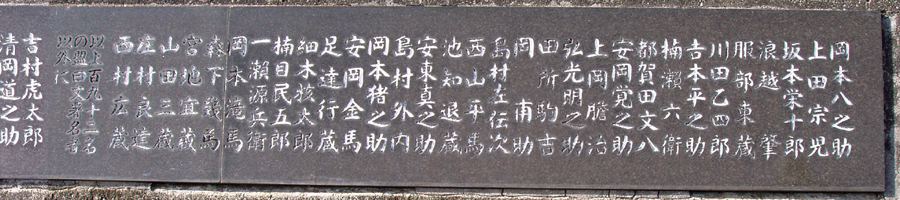 岡本八之助
上田宗児
坂本栄十郎
浪越 肇
服部東蔵
川田乙四郎
吉本平之助
楠瀬六衛
都賀田文八
安岡覚之助
上岡膽治
弘光明之助
田所駒吉
岡 甫助
島村左伝次
西山平馬
池知退蔵
安東真之助
島村外内
岡本猪之助
安岡金馬
足達行蔵
細木核太郎
楠目民五郎
一瀬源兵衛
岡本滝馬
森下幾馬
宮地宜蔵
山田三蔵
庄村良達
西村広蔵
以上百九十二名
の盟曰文署名者
以外に
吉村虎太郎
清岡道之助